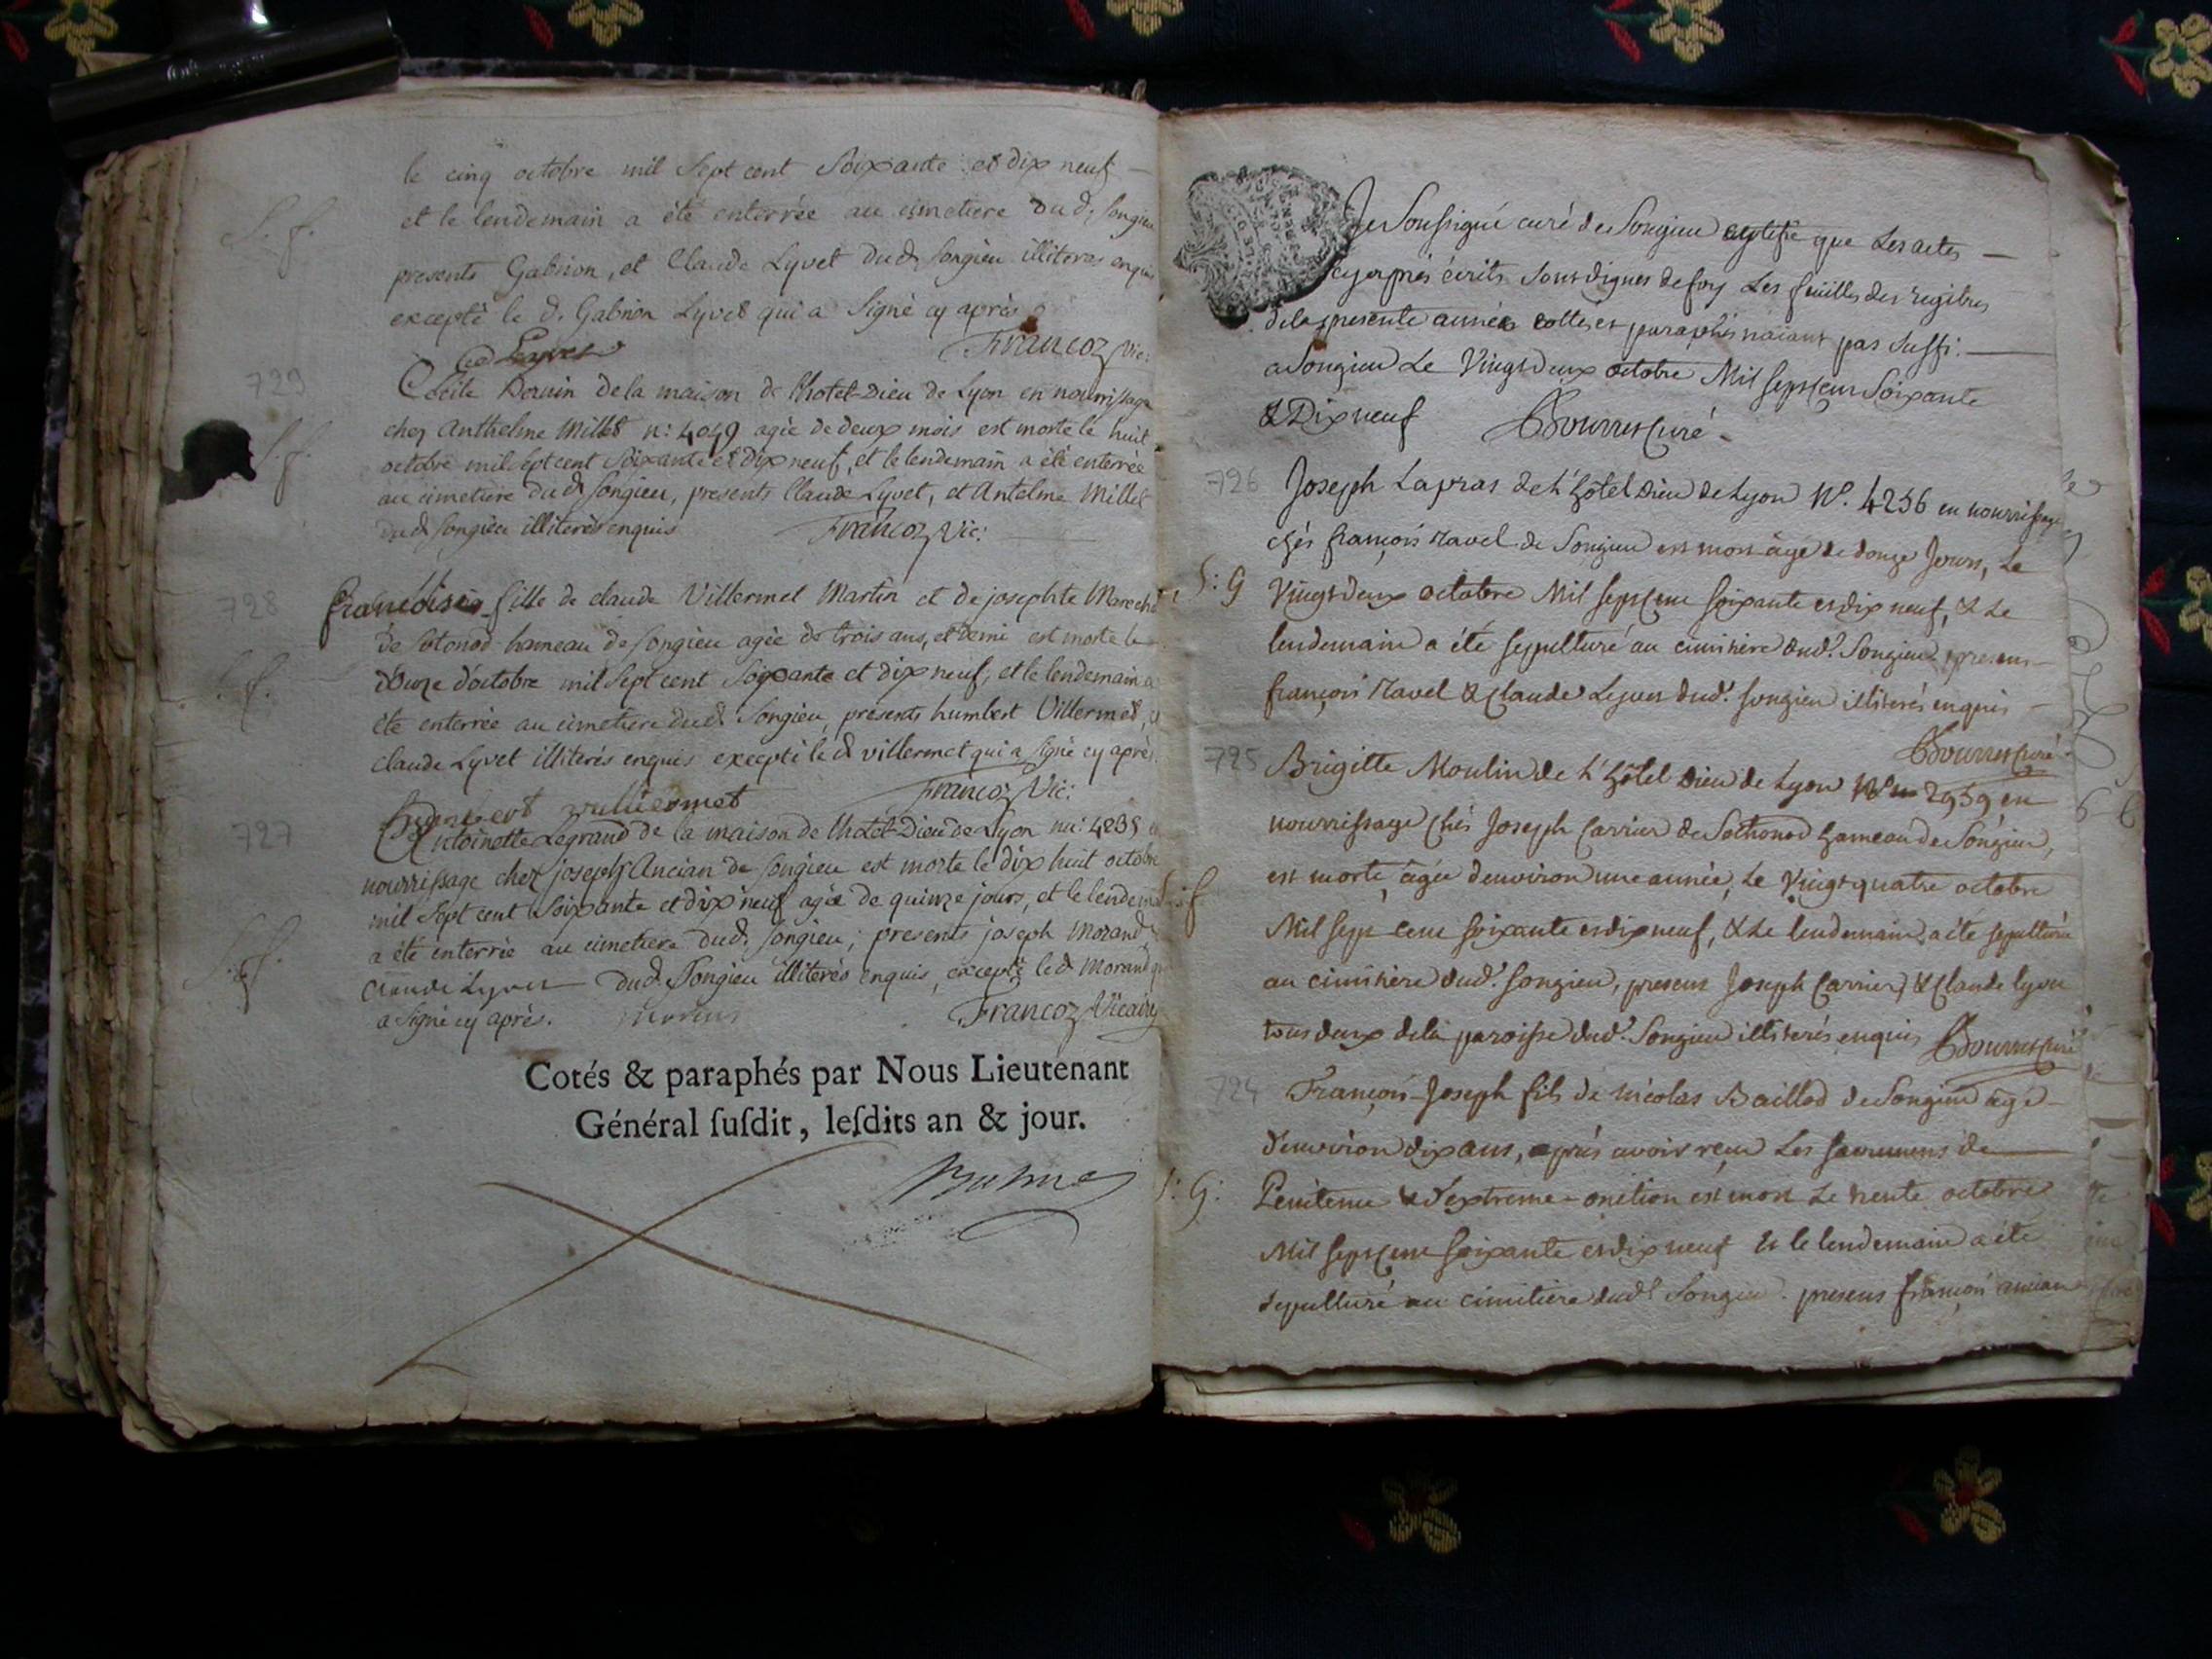 le cinq octobre mil Sept cent Soixante et dix neuf
S. f.
et le lendemain a été enterrée au cimetiere du d. Songieu
presents Gabrion, et Claude Lyvet dud. Songieu illiterés enquis
excepté le d. Gabrion Lyvet qui a Signé cy après
Francoz Vic:
729
Cécile Dervin de la maison de l'hotel-Dieu de Lyon en nourrissage
chez Anthelme Millet n: 4049 agée de deux mois est morte le huit
S. f.
octobre mil Sept cent Soixante et Dix neuf, et le lendemain a été enterrée
au cimetiere du d. Songieu, presents Claude Lyvet, et Antelme Millet
du d. Songieu illiterés enquis Francoz Vic:
728
francoise fille de claude Villermet Martin et de josephte Marecha
de Sotonod hameau de Songieu agée de trois ans, et demi est morte le
S. f.
douze d'octobre mil Sept cent Soixante et dix neuf, et le lendemain a
été enterrée au cimetiere du d. Songieu, presents humbert Villermet, et
claude Lyvet illiterés enquis excepté le d. villermet qui a Signé cy après
Francoz Vic:
humbert vulliermet
727
Antoinette Legrand de la maison de l'hotel-Dieu de Lyon nu: 4235 en
nourrissage chez joseph Ancian de Songieu est morte le dix huit octobre
mil Sept cent Soixante et dix neuf agée de quinze jours, et le lendemain
S. f.
a été enterrée au cimetiere dud. Songieu; presents joseph Morand,
Claude Lyvet dud. Songieu illiterés enquis, excepté le d. Morand qui
a Signé cy après. Francoz Vicaire
Cotés & paraphés par Nous Lieutenant
Général susdit, lesdits an & jour.
Je Soussigné curé de Songieu certifie que Les actes
cy après écrits Sont dignes de foy Les feuilles des regitres
de la presente année cottes et paraphés naiant pas Suffi.
a Songieu Le Vingt deux octobre Mil sept cent Soixante
& Dix neuf Bourret Curé
726
Joseph Lapras de L'hôtel Dieu de Lyon N°. 4256 en nourrissage
chés françois Ravel de Songieu est mort âgé de douze Jours, Le
S: G
Vingt deux octobre Mil sept cent soixante et dix neuf, & Le
lendemain a été sepulturé au cimitière dud.t Songieu presens
françois Ravel & Claude Lyvet dud.t songieu illiterés enquis
Bourret Curé
725
Brigitte Moulin de L'hôtel Dieu de Lyon N° 2959 en
nourrissage chés Joseph Carrier de Sothonod hameau de Songieu,
S: f
est morte âgée d'environ une année, Le Vingt quatre octobre
Mil sept cent soixante et dix neuf, & Le lendemain a été sepulturée
au cimitière dud.t songieu, presens Joseph Carrier, & Claude lyvet
tous deux de la paroisse dud.t Songieu illiterés enquis Bourret Curé
724
François-Joseph fils de nicolas Baillod de Songieu âgé
d'environ dix ans, après avoir reçu Les sacremens de
S: G:
Penitence & d'extreme-onction est mort Le trente octobre
Mil sept cent soixante et dix neuf & le lendemain a été
sepulturé au cimitiere dud.t Songieu. presens françois ancian